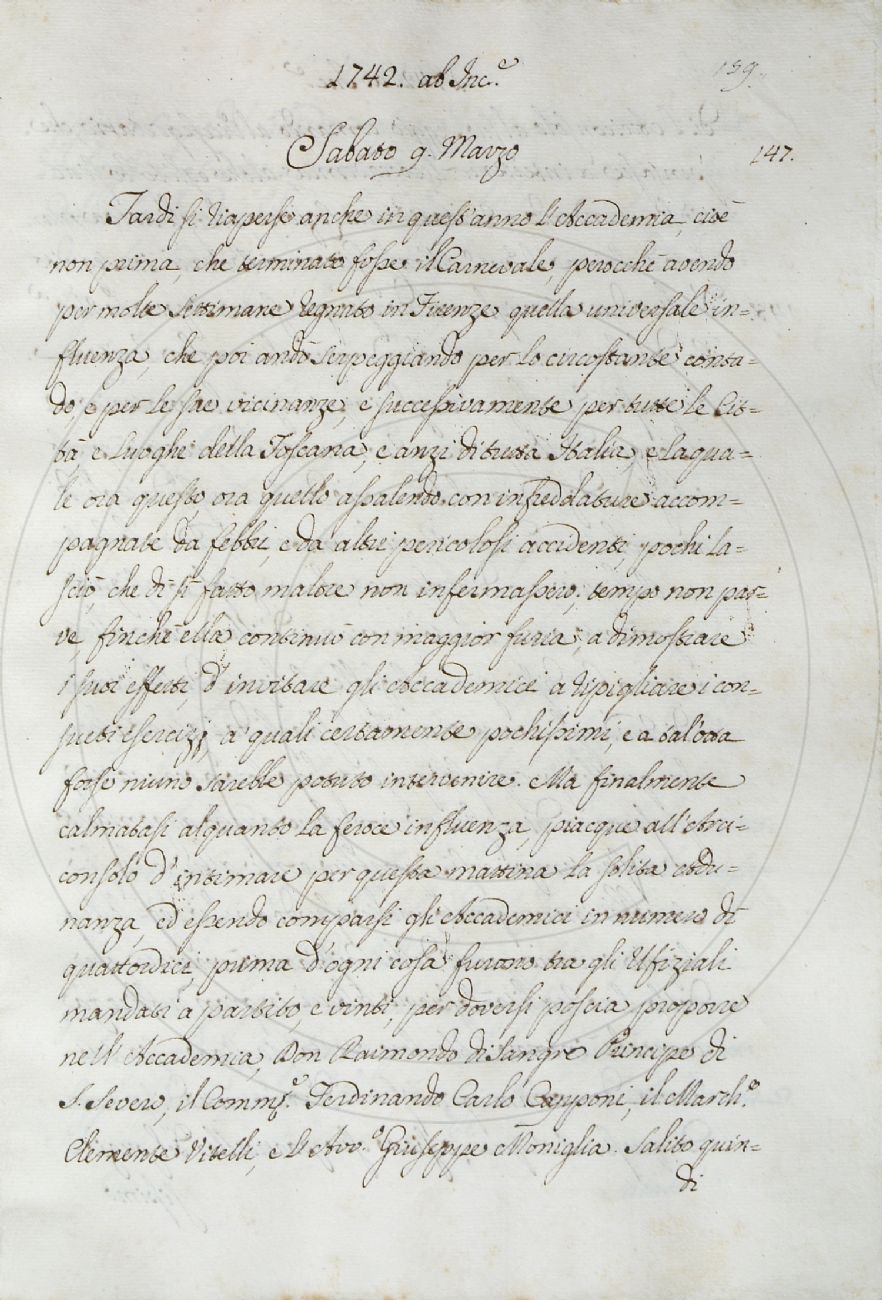 1742. ab Inc.e
159.
Sabato 9. Marzo
147.
Tardi si riaperse anche in quest'anno l'Accademia, cioè
non prima, che terminato fosse il Carnevale, perocchè avendo
per molte settimane regnato in Firenze quella universale in=
fluenza, che poi andò serpeggiando per lo circostante conta=
do, e per le sue vicinanze, e successivamente per tutte le Cit=
tà, e Luoghi della Toscana, e anzi di tutta Italia, e laqua=
le ora questo ora quello assalendo con infreddature accom=
pagnate da febbri, e da altri pericolosi accidenti, pochi la=
sciò, che di sì fatto malore non infermassero; tempo non par=
ve, finchè ella continuò con maggior furia, a dimostrare
i suoi effetti, d'invitare gli Accademici a ripigliare i con=
sueti esercizj, a' quali certamente pochissimi, e a talotta
forse niuno sarebbe potuto intervenire. Ma finalmente
calmatasi alquanto la feroce influenza, piacque all'Arci=
consolo d'intimare per questa mattina la solita Adu=
nanza, ed essendo comparsi gli Accademici in numero di
quattordici, prima d'ogni cosa furono tra gli Ufiziali
mandati a partito, e vinti, per doversi poscia proporre
nell'Accademia, Don Raimondo di Sangro Principe di
S. Severo, il Comm.e Ferdinando Carlo Capponi, il March.e
Clemente Vitelli, e l'Avv.o Giuseppe Moniglia. Salito quin=
di